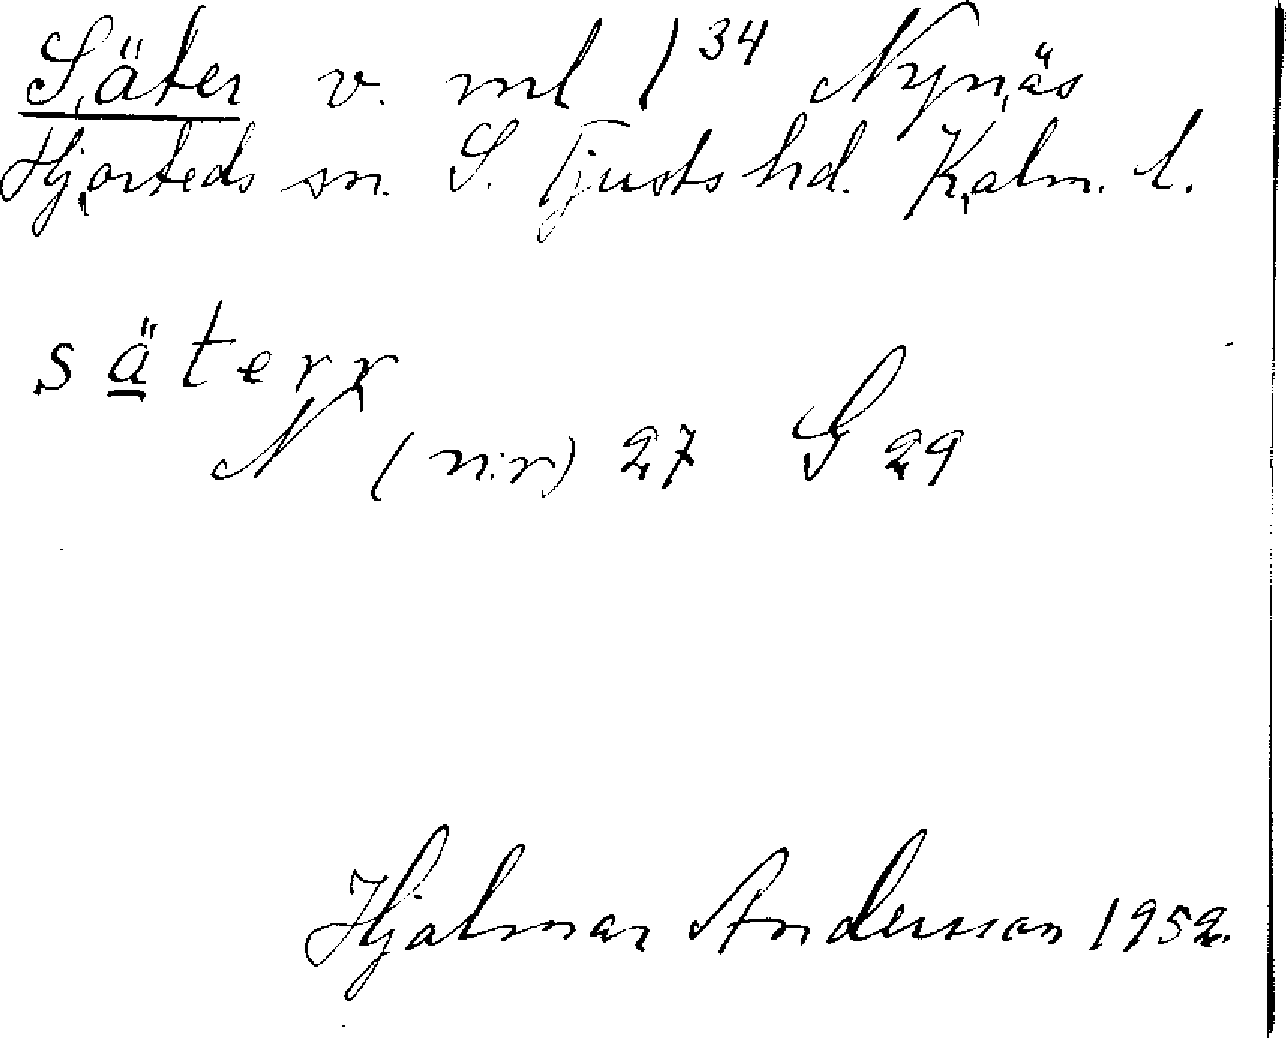 Säter v. ml 1 34 Nynäs
Hjorteds sn. S. Tjusts hd. Kalm. l.
säterr
N (n:r) 27 G 29
Hjalmar Andersson 1952.